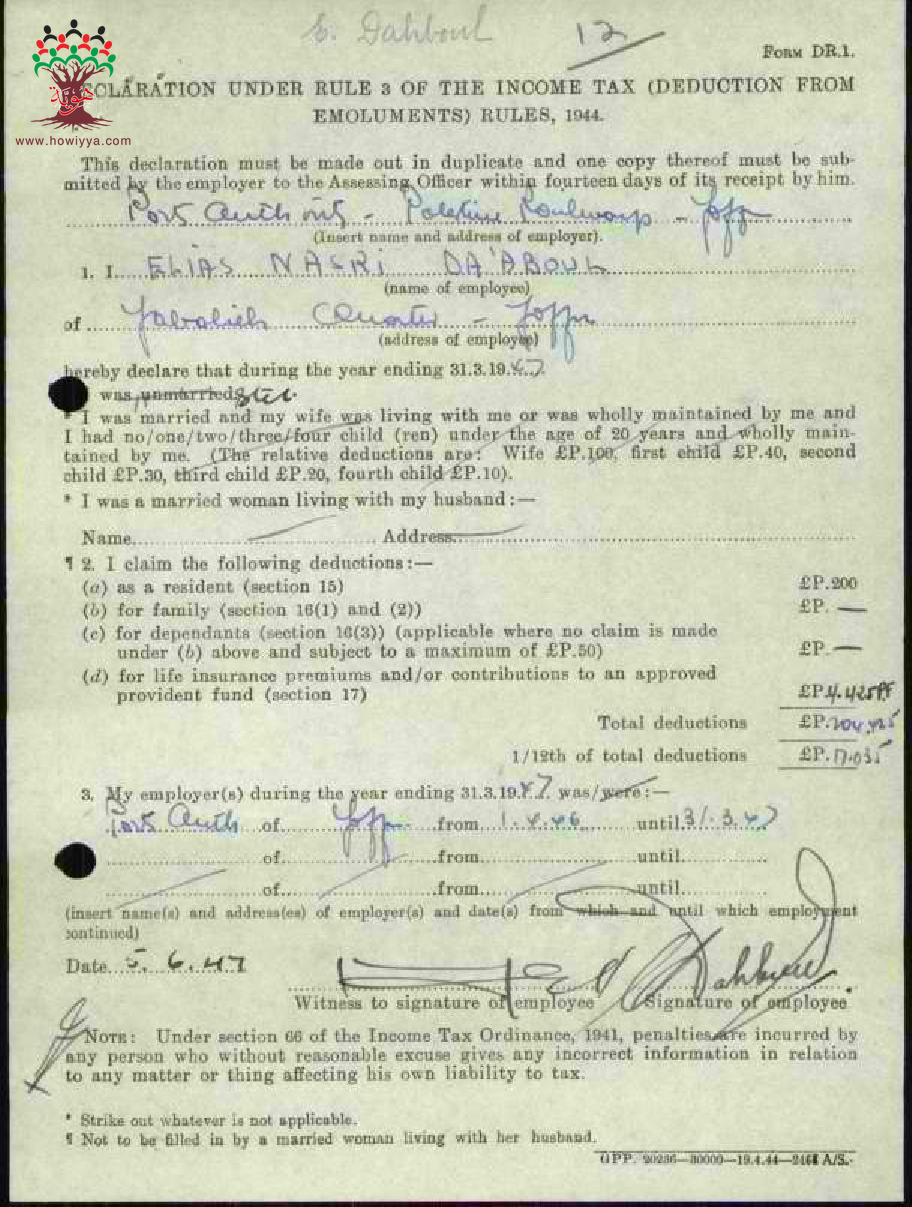 E. Dahboul 12
FORM DR.1.
DECLARATION UNDER RULE 3 OF THE INCOME TAX (DEDUCTION FROM
EMOLUMENTS) RULES, 1944.
www.howiyya.com
This declaration must be made out in duplicate and one copy thereof must be sub-
mitted by the employer to the Assessing Officer within fourteen days of its receipt by him.
Port Authority - Palestine Railways - Jaffa
(Insert name and address of employer).
1. I ELIAS NASRI DA'ABOUL
(name of employee)
of Jabalieh Quarter - Jaffa
(address of employee)
hereby declare that during the year ending 31.3.1947.
was unmarried
* I was married and my wife was living with me or was wholly maintained by me and
I had no/one/two/three/four child (ren) under the age of 20 years and wholly main-
tained by me. (The relative deductions are: Wife £P.100, first child £P.40, second
child £P.30, third child £P.20, fourth child £P.10).
* I was a married woman living with my husband:—
Name Address
¶ 2. I claim the following deductions:—
(a) as a resident (section 15) £P.200
(b) for family (section 16(1) and (2)) £P. —
(c) for dependants (section 16(3)) (applicable where no claim is made
under (b) above and subject to a maximum of £P.50) £P. —
(d) for life insurance premiums and/or contributions to an approved
provident fund (section 17) £P.4.425 PF
Total deductions £P.204.425
1/12th of total deductions £P.17.035
3. My employer(s) during the year ending 31.3.1947. was/were:—
Port Auth of Jaffa from 1.4.46 until 31.3.47
of from until
of from until
(insert name(s) and address(es) of employer(s) and date(s) from which and until which employment
continued)
Date 5.6.47
Dahboul
Witness to signature of employee Signature of employee.
NOTE: Under section 66 of the Income Tax Ordinance, 1941, penalties are incurred by
any person who without reasonable excuse gives any incorrect information in relation
to any matter or thing affecting his own liability to tax.
* Strike out whatever is not applicable.
¶ Not to be filled in by a married woman living with her husband.
GPP. 20236—30000—19.4.44—2468 A/S.